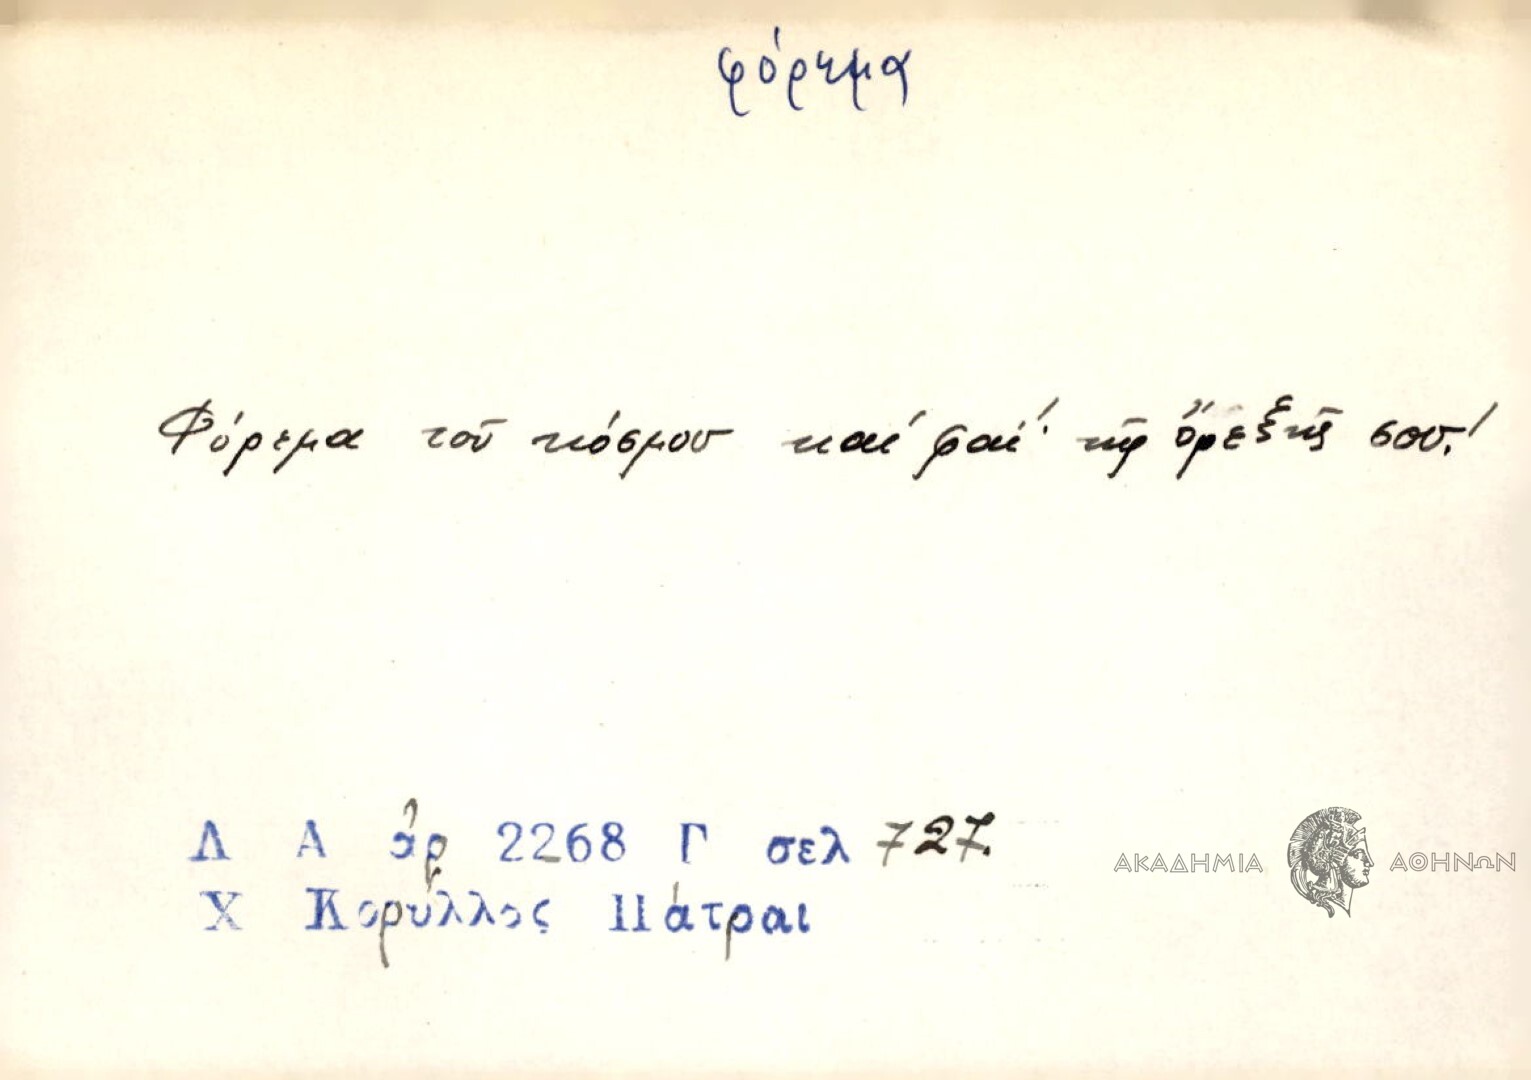 φόρεμα
Φόρεμα τοῦ κόσμου καί φαΐ τῆς ὄρεξής σου!
Λ Α ἀρ 2268 Γ σελ 727.
Χ Κορύλλος Πάτραι
ΑΚΑΔΗΜΙΑ ΑΘΗΝΩΝ